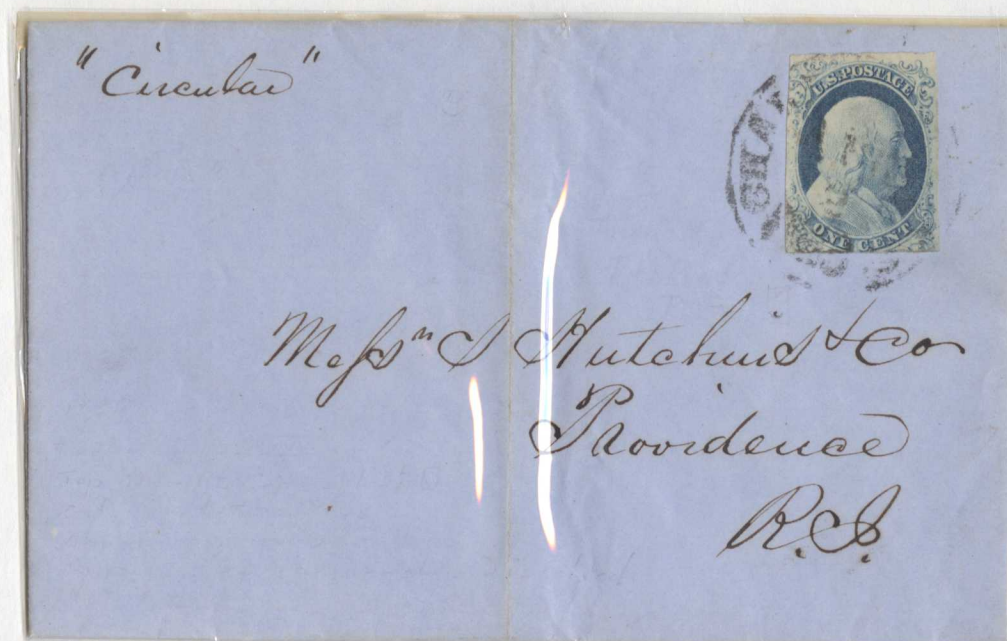 "Circular"
U.S. POSTAGE
ONE CENT
Messrs S Hutchins & Co
Providence
R.I.